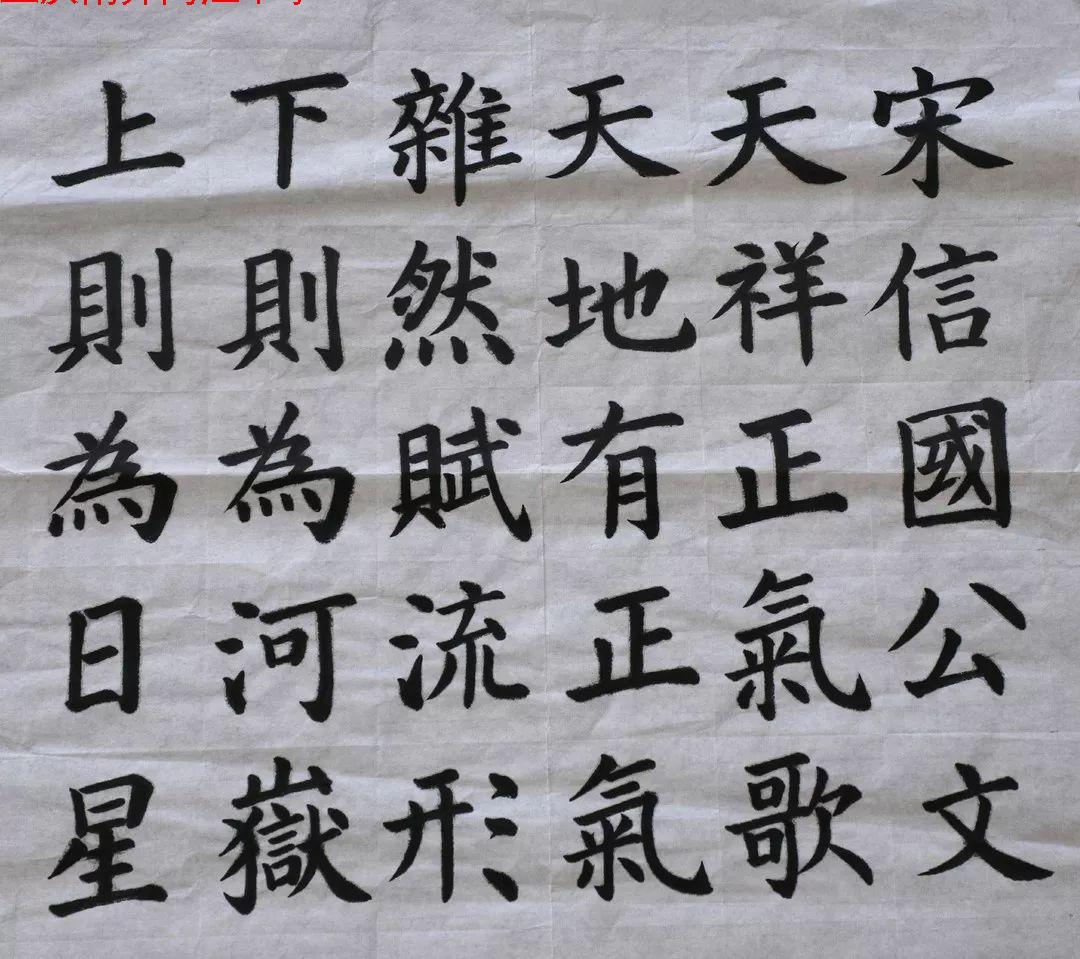 宋信國公文
天祥正氣歌
天地有正氣
雜然賦流形
下則為河嶽
上則為日星